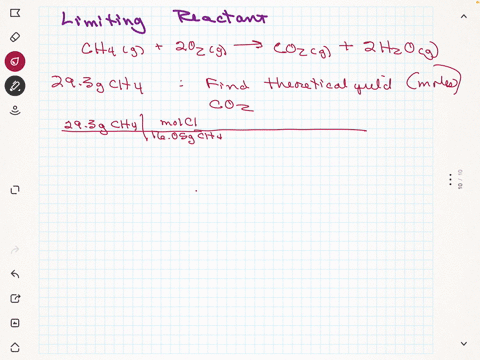 Limiting Reactant
CH4(g) + 2O2(g) → CO2(g) + 2H2O(g)
29.3g CH4 : Find theoretical yield (moles)
CO2
29.3g CH4 | mol C
16.05g CH4
10 / 10